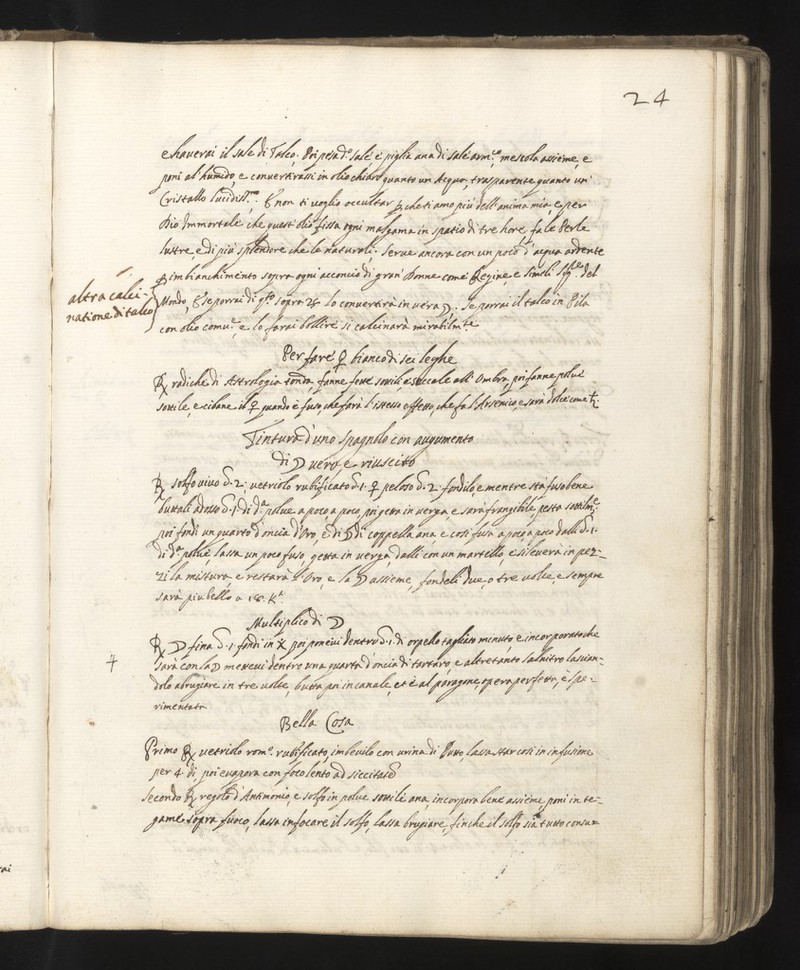 24
e haverai il sale di Talco. Poi pesa d.º sale e piglia ana di sale arm.º, mescola assieme, e
poni al humido, e convertirassi in olio chiaro quanto un Acqua, trasparente quanto un
Cristallo lucidiss.mo. E non ti voglio occultar che ti amo più dell'anima mia, e per
Dio Immortale, che quest'olio fissa ogni malgama in spatio di tre hore, fa le Perle
lustre, e di più splendore che le naturali. Serve ancora con un poco d'acqua ardente
imbianchimento sopra ogni acconcio di gran Donne come Regine, e simili del
altra calci-
natione di talco
Mondo, E se porrai di q.to sopra ♃ lo convertirà in vera ☽. Se porrai il talco in Pila
con olio comu.e e lo farai bollire si calcinarà mirabilm.te
Per fare ♀ bianco di sei leghe
℞ radiche di Astrologia tonda, fanne fette sottili, e seccale all'Ombra, poi fanne polve
sottile, e cibane il ♀ quando è fuso, che farà l'istesso effetto, che fa l'Arsenico, e sarà dolce come
Tintura d'uno Spagnolo con augumento
di ☽ vero, e riuscito
℞ solfo vivo 2. vetriolo rubificato 1. ♀ peloso 2. fondilo, e mentre sta fuso bene
buttali adosso 1. di d.ª polve a poco a poco, poi getta in verga, e sarà frangibile, pesta sottilm.e
poi fondi un quarto d'oncia d'Oro, e di ☽ di coppella ana, e cosi fusa a poco a poco dalli 1.
di d.ª polve, lassa un poco fuso, getta in verga, dalli con un martello, e si leverà in pez-
zi la mistura, e restarà l'Oro, e la ☽ assieme, fondeli due, o tre volte, e sempre
sarà piu bello a 18. K.ti
Multiplico di ☽
℞ ☽ fina 1. fondi in poi ponevi dentro 1. di orpello tagliato minuto, e incorporato che
sarà con la ☽ mettevi dentro una quarta d'oncia di tartaro, e altretanto salnitro lascian-
dolo abrugiare in tre volte, butta poi in canale, et è al paragone, opera perfetta, e spe-
rimentata
Bella Cosa
Primo ℞ vetriolo rom.º rubificato, imbevilo con urina di Putto, lassa star cosi in infusione
per 4. di, poi evapora con foco lento ad siccitatē
Secondo ℞ regolo d'Antimonio, e solfo in polve sottile ana, incorpora bene assieme, poni in te-
game sopra fuoco, lassa infocare il solfo, lassa brugiare, finche il solfo sia tutto consu=